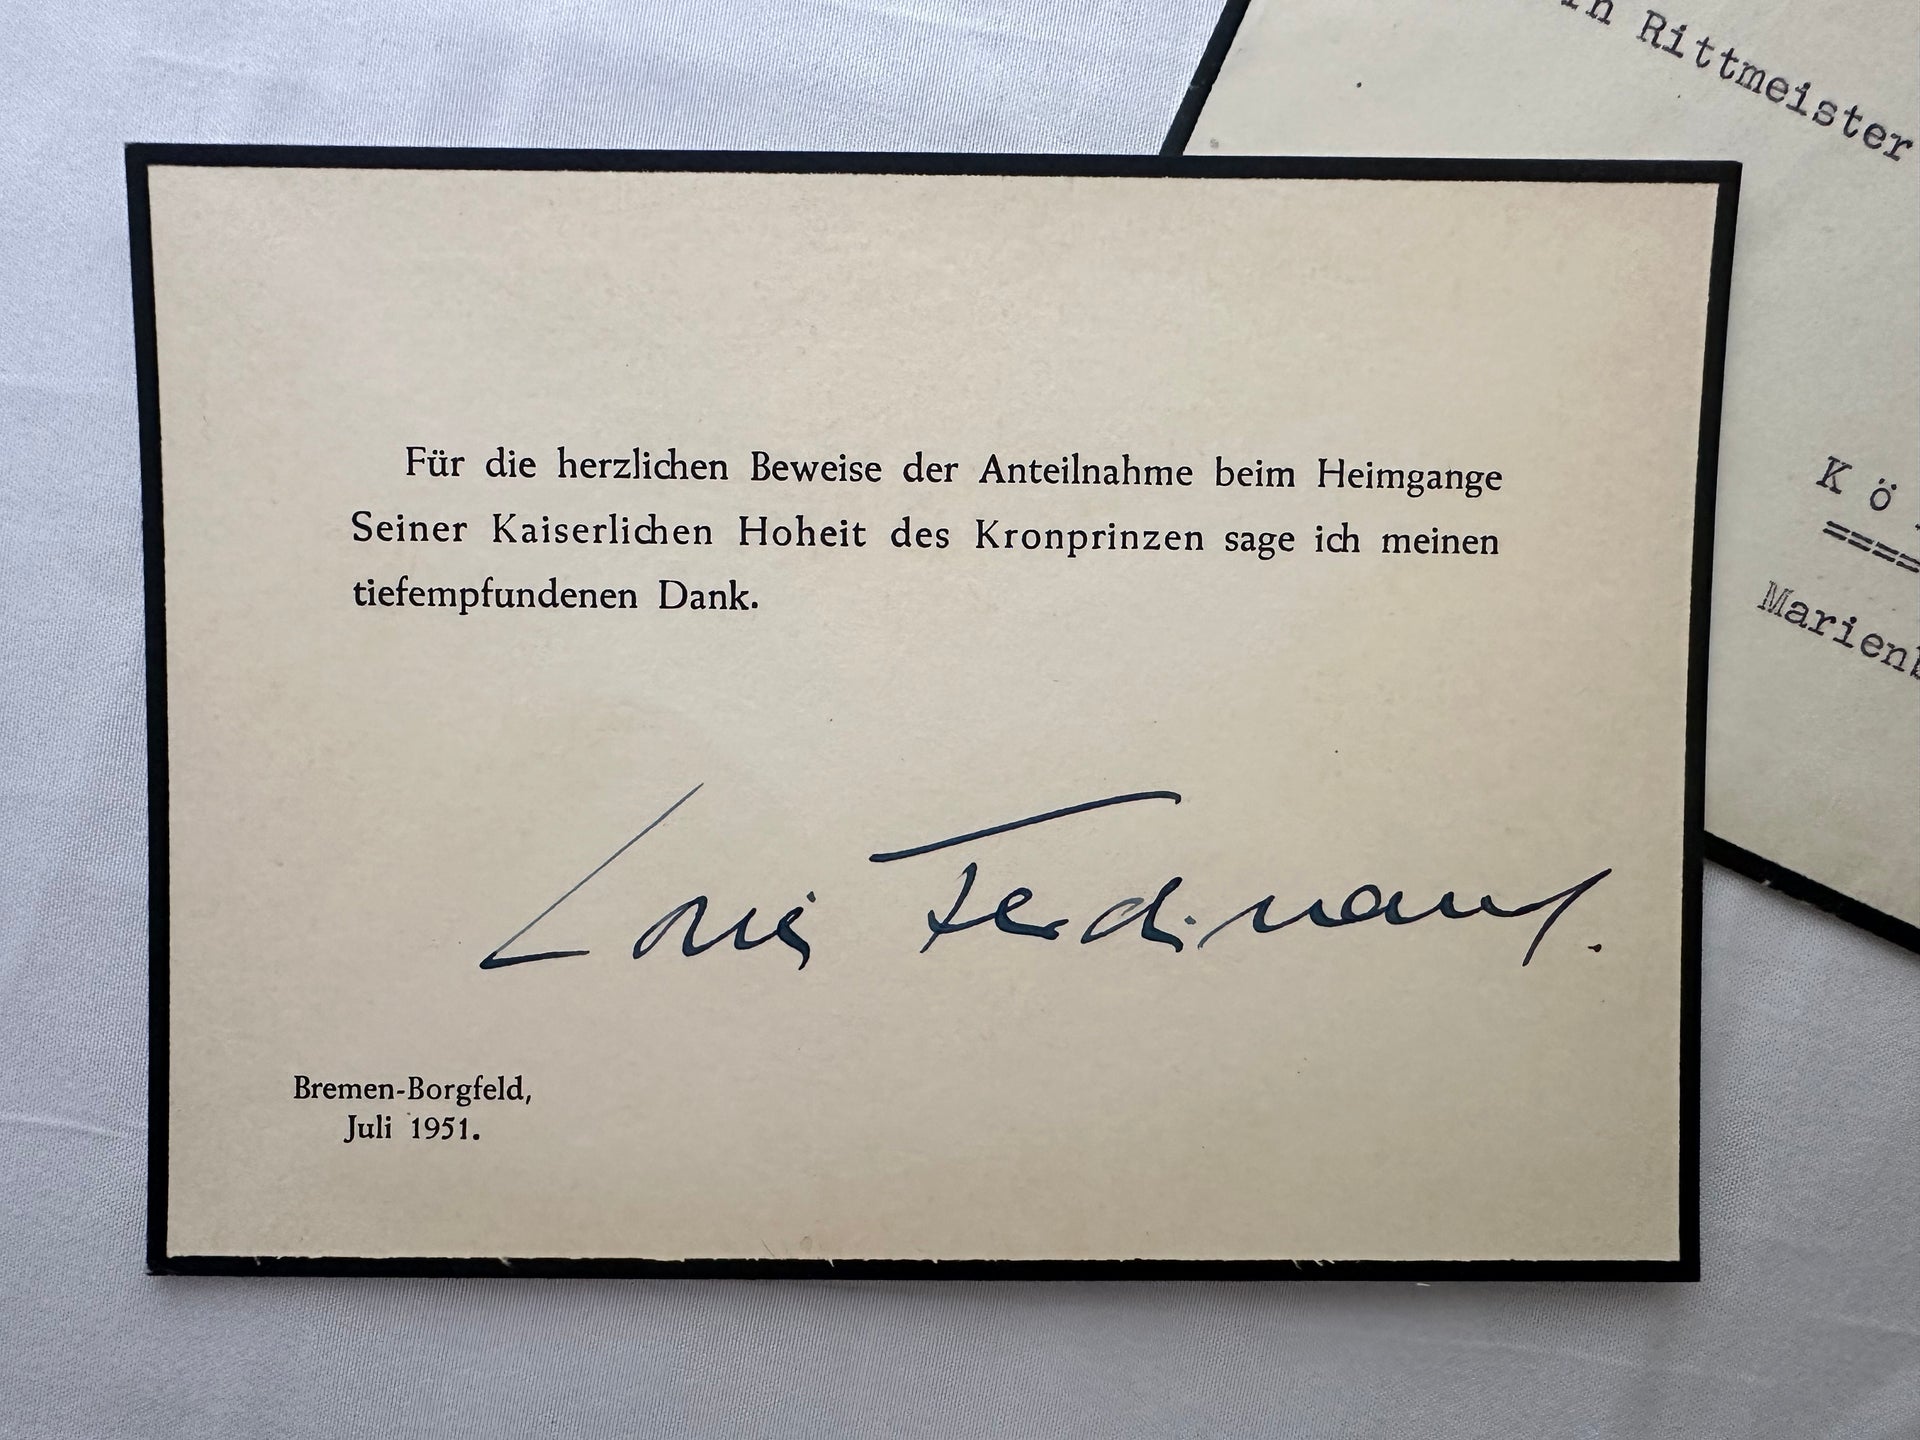 Für die herzlichen Beweise der Anteilnahme beim Heimgange
Seiner Kaiserlichen Hoheit des Kronprinzen sage ich meinen
tiefempfundenen Dank.
Louis Ferdinand.
Bremen-Borgfeld,
Juli 1951.
Rittmeister
K ö
====